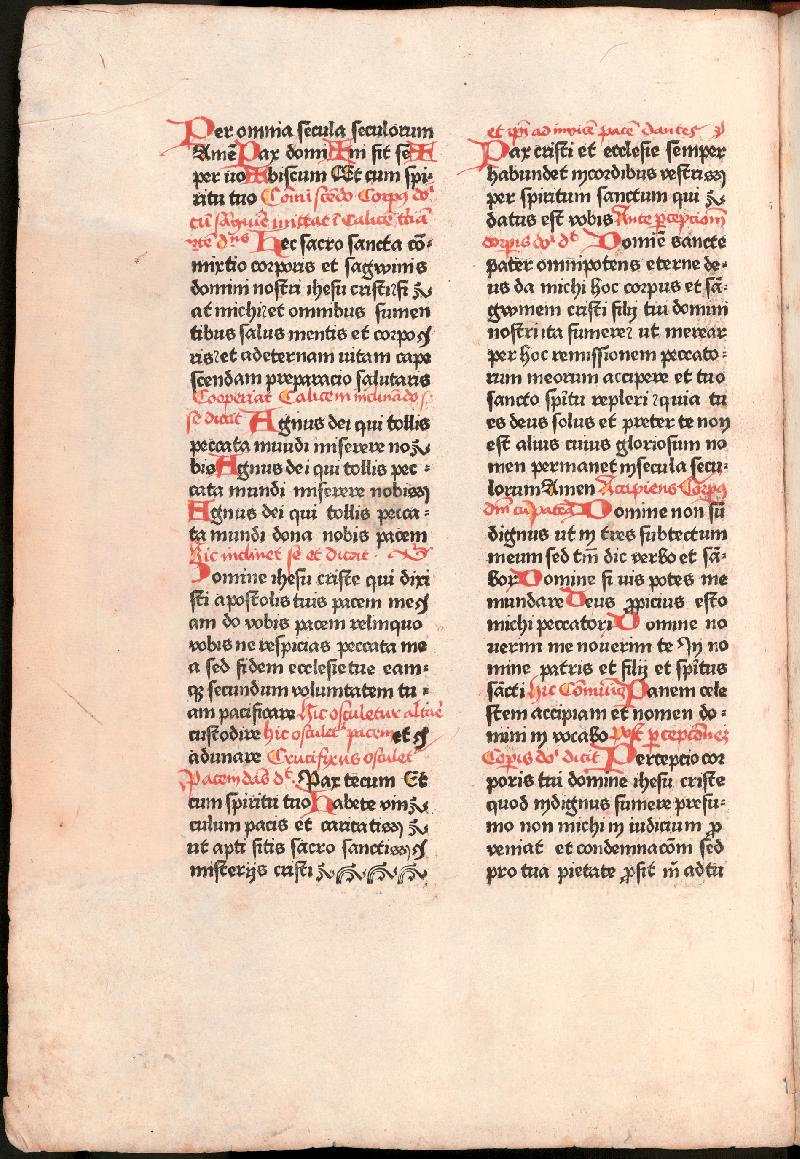 Per omnia secula seculorum
Amē Pax domi✠ni sit sē✠
per uo✠biscum Et cum spi-
ritu tuo Cōmiscēdo Corpꝰ doⁱ
cū sāguīe mittat ī Calicē
Hec sacro sancta cō-
mixtio corporis et sagwinis
domini nostri ihesu cristi: fi
at michi: et omnibus sumen
tibus salus mentis et corpo
ris: et ad eternam uitam cape
scendam preparacio salutaris
Cooperiat Calicem inclinādo
se dicit Agnus dei qui tollis
peccata mundi miserere no
bis Agnus dei qui tollis pec-
cata mundi miserere nobis
Agnus dei qui tollis pecca-
ta mundi dona nobis pacem
Hic inclinet se et dicit
Domine ihesu criste qui dixi
sti apostolis tuis pacem me
am do vobis pacem relinquo
vobis ne respicias peccata me
a sed fidem ecclesie tue eam-
qꝫ secundum voluntatem tu-
am pacificare Hic osculetur altare
custodire hic osculet pacem et
adunare Crucifixus osculet
Pacem dās dt Pax tecum Et
cum spiritu tuo Habete vin
culum pacis et caritatis
ut apti sitis sacro sanctis
misterijs cristi
et ipī ad invicē pacē dantes
Pax cristi et ecclesie semper
habundet in cordibus vestris
per spiritum sanctum qui
datus est vobis Ante perceptionī
corpīs doⁱ dt Domine sancte
pater omnipotens eterne de-
us da michi hoc corpus et sā-
gwinem cristi filij tui domini
nostri ita sumere: ut merear
per hoc remissionem peccato-
rum meorum accipere et tuo
sancto spītu repleri: quia tu
es deus solus et preter te non
est alius cuius gloriosum no
men permanet in secula secu-
lorum Amen Accipiens Corpꝰ
dnī cū patea Domine non sū
dignus ut in tres sub tectum
meum sed tm̄ dic verbo et sā-
bor Domine si uis potes me
mundare Deus ꝓpicius esto
michi peccatori Domine no
uerim me nouerim te In no
mine patris et filij et spītus
sācti hic Cōmūicꝫ Panem cele
stem accipiam et nomen do-
mini in vocabo Post pceptionez
Corpis doⁱ dicit Perceptio cor
poris tui domine ihesu criste
quod indignus sumere presu-
mo non michi in iudicium ꝓ
veniat et condemnacōm sed
pro tua pietate ꝓsit m̄ ad tu